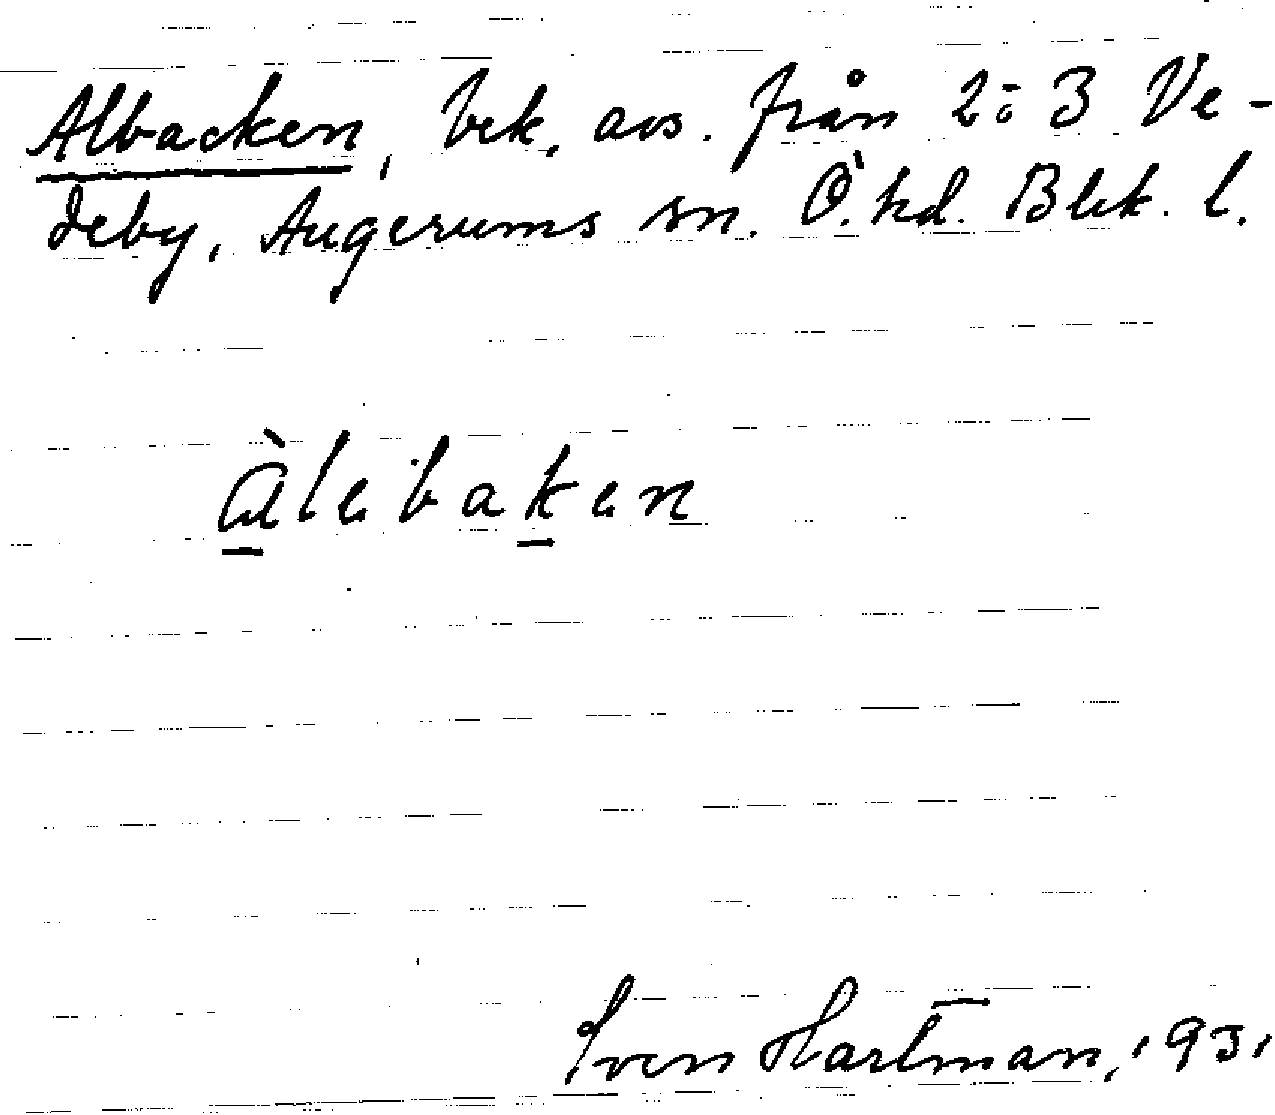 Albacken, bek. avs. från 2:3 Ve-
deby, Augerums sn. Ö. hd. Blek. l.
àlebaken
Sven Hartman, 1931